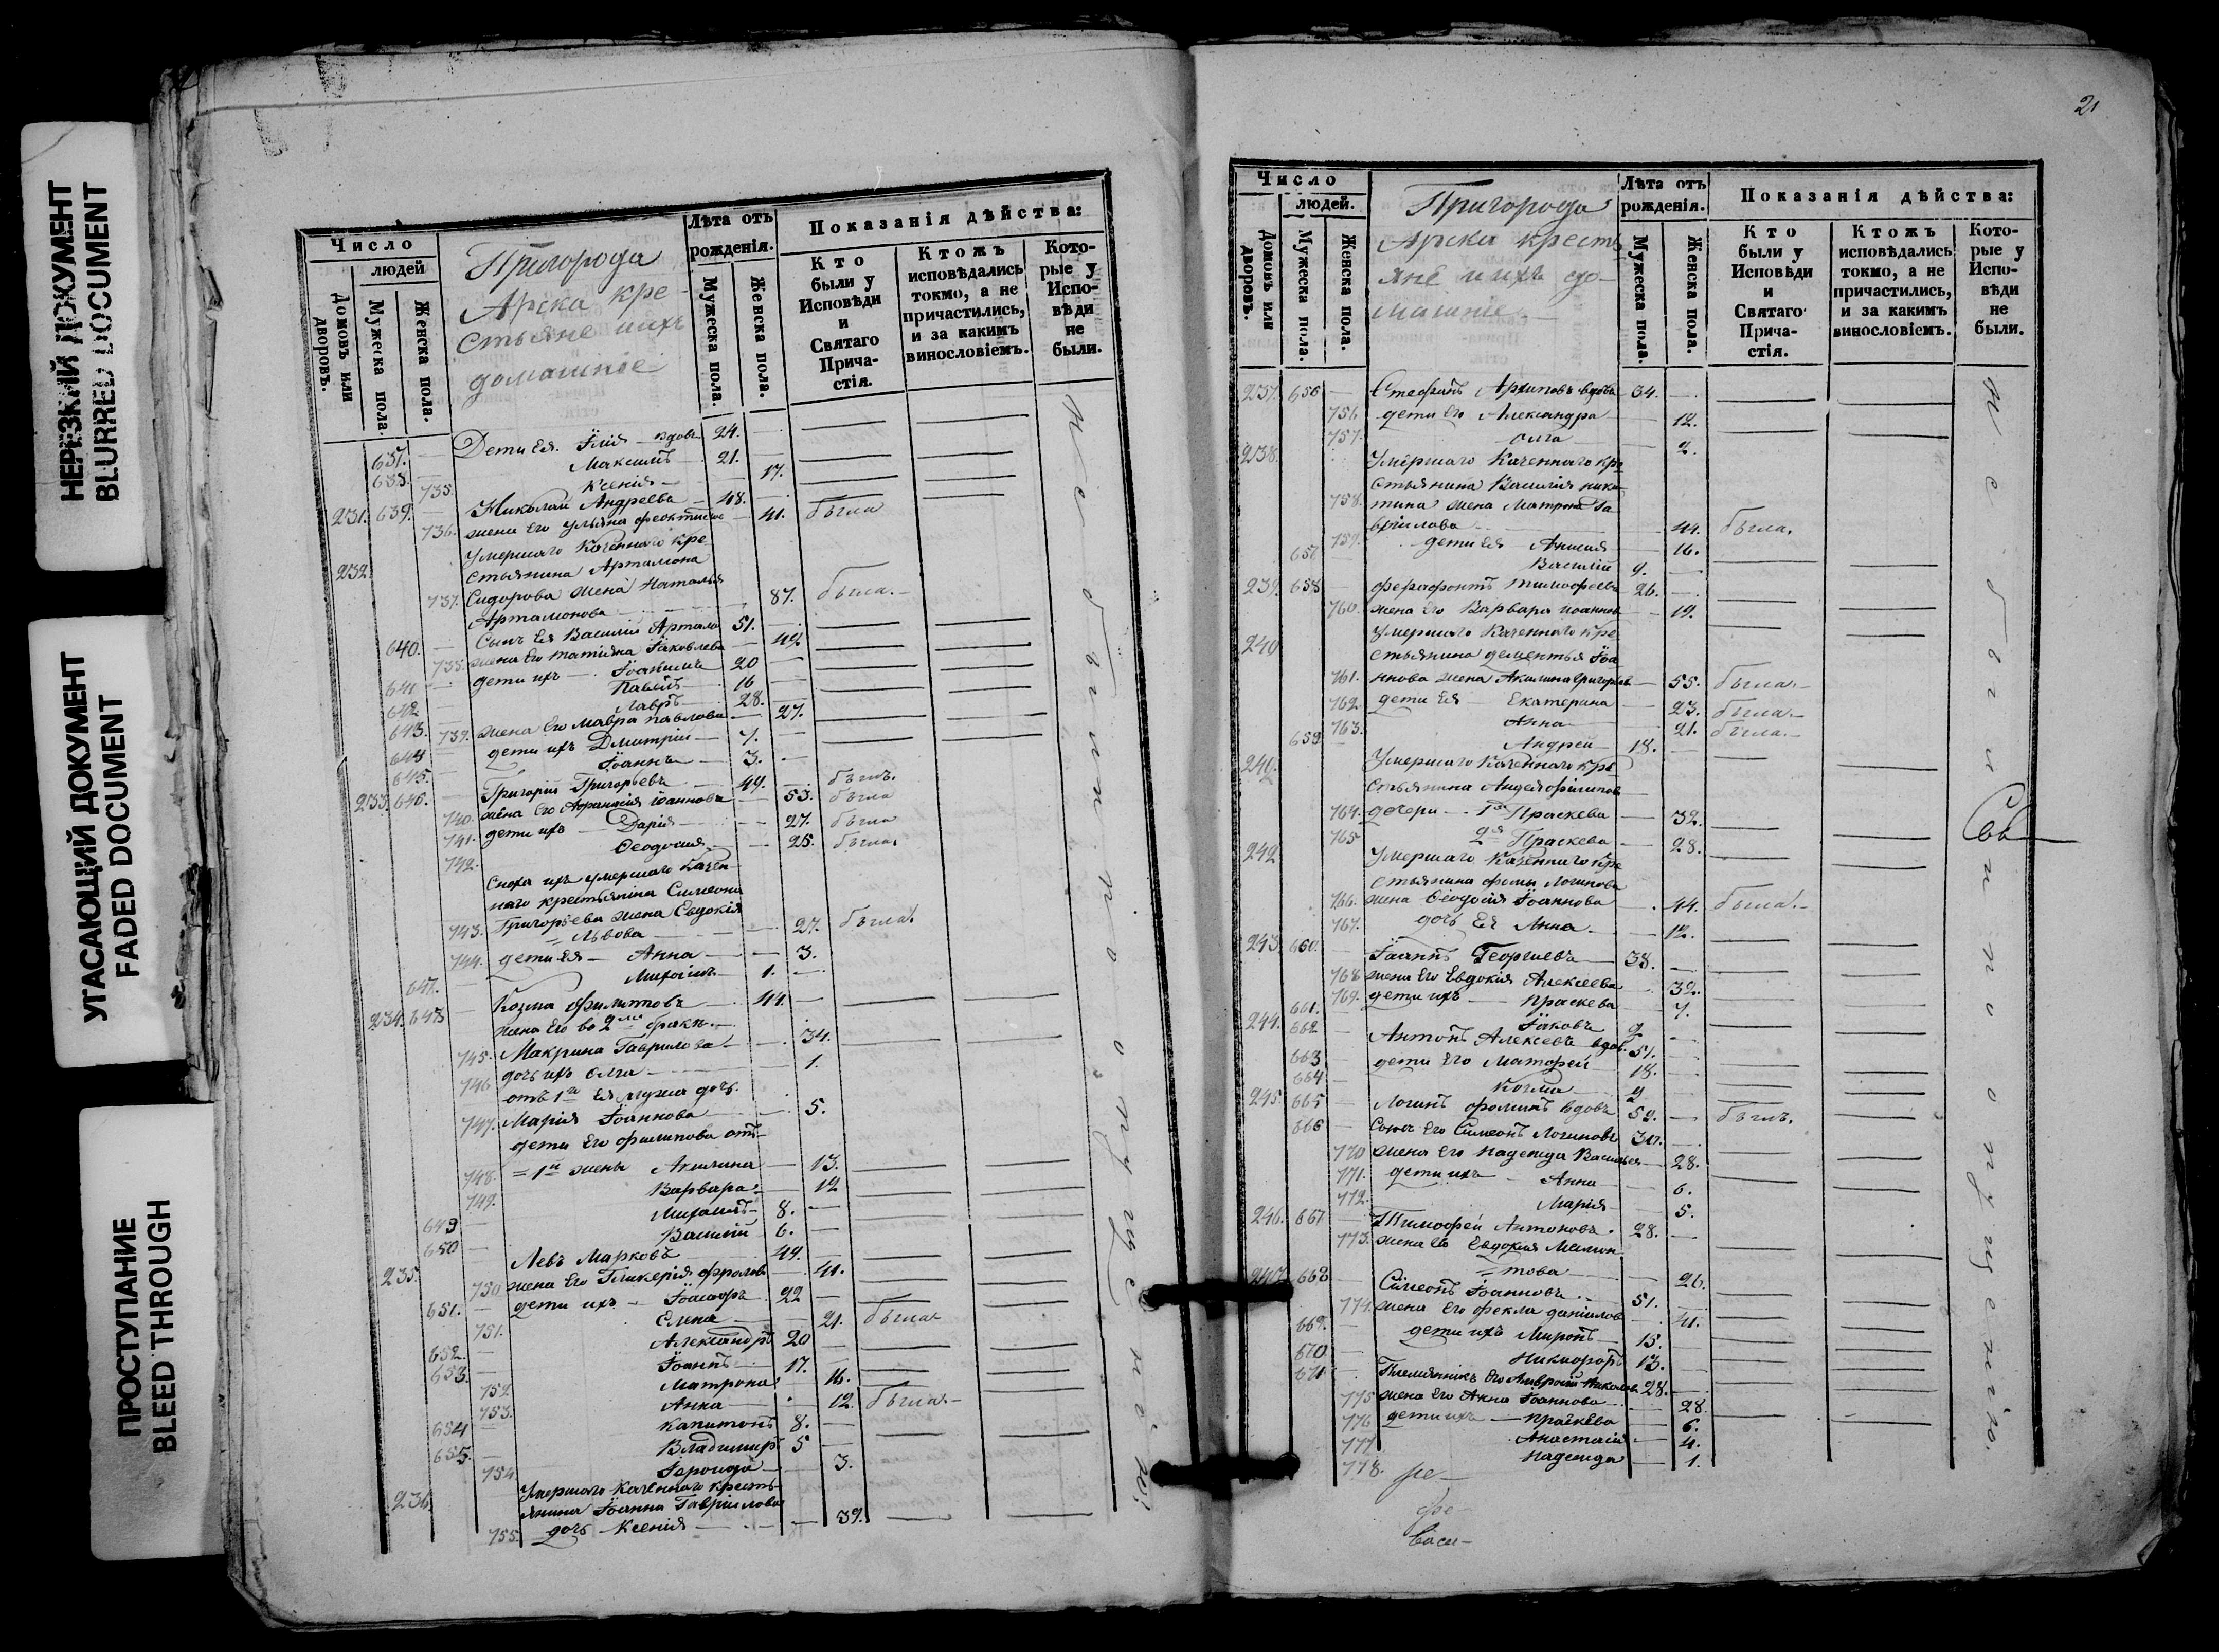 НЕРЕЗКИЙ ДОКУМЕНТ
BLURRED DOCUMENT
УГАСАЮЩИЙ ДОКУМЕНТ
FADED DOCUMENT
ПРОСТУПАНИЕ
BLEED THROUGH
Число
людей
Домовъ или дворовъ.
Мужеска пола.
Женска пола.
Пригорода
Арска кре-
стьяне и ихъ
домашніе
Лѣта отъ рожденія.
Мужеска пола.
Женска пола.
Показанія дѣйства:
Кто были у Исповѣди и Святаго Прича-стія.
Ктожъ исповѣдались токмо, а не причастились, и за какимъ винословіемъ.
Кото-рые у Испо-вѣди не были.
637. Дети Ея Илія вдовъ 24.
638. Максимъ 21.
735. Ксенія 17.
231. 639. Николай Андреевъ 48.
736. жена Его Ульяна 41. была
232. Умершаго Казеннаго кре
стьянина Артамона
737. Сидорова жена Наталья
Артамонова 87. была.
640. Сынъ Ея Василій Артамо 51.
738. жена Его Татіяна Іаковлева 49.
641 дети ихъ Іоакимъ 20
642 Павелъ 16
643. Лавръ 28.
739. жена Его Мавра Павлова 27.
644 дети ихъ Дмитрій 7.
645. Іоаннъ 3.
233. 646. Григорій Григорьевъ 49. былъ.
740. жена Его Афанасія Іоаннова 53. была
741. дети ихъ Дарія 27. была
742. Ѳеодосия 25. была.
Сноха ихъ умершаго Казен-
наго крестьянина Симеона
743. Григорьева жена Евдокія
Львова 27. была.
744. дети Ея Анна 3.
647. Михаилъ 1.
234. 648 Козма Филиповъ 44.
жена Его во 2мъ браке
745. Макрина Гаврилова 34.
746 дочь ихъ Олга 1.
отъ 1го Ея мужа дочь
747. Марія Іоаннова 5.
дети Его Филипова отъ
748. 1й жены Акилина 13.
749. Варвара 12
649 Михаилъ 8.
650 Василій 6.
235. Левъ Марковъ 49.
750 жена Его Гликерія Фролов 41.
651. дети ихъ Іосифъ 22
751. Елена 21. была
652. Александръ 20
653. Іоаннъ 17.
752 Матрона 16.
753. Анна 12. была
654 Капитонъ 8.
655. Владимиръ 5
754 3.
236 Умершаго Казеннаго кресть
янина Іоанна Гаврилова
755. дочь Ксенія 39.
не были по опущенію
21
Число
людей.
Домовъ или дворовъ.
Мужеска пола.
Женска пола.
Пригорода
Арска кресть
яне и ихъ до-
машніе
Лѣта отъ рожденія.
Мужеска пола.
Женска пола.
Показанія дѣйства:
Кто были у Исповѣди и Святаго Прича-стія.
Ктожъ исповѣдались токмо, а не причастились, и за какимъ винословіемъ.
Кото-рые у Испо-вѣди не были.
237. 656 Стефанъ Архиповъ вдовъ 34.
756. дети Его Александра 12.
757. Олга 2.
238. Умершаго Казеннаго кре
стьянина Василія Ники
758. тина жена Матрона Га
врилова 44. была.
759. дети Ея 16.
657 Василій 9.
239. 658 Ферафонтъ Тимофеевъ 26.
760. жена Его Варвара Іоаннов 19.
240 Умершаго Казеннаго кре
стьянина Дементья Іоа
761. ннова жена Акилина Григорьев 55. была
762. дети Ея Екатерина 23. была
763. Анна 21. была
659 Андрей 18.
Умершаго Казеннаго кре
стьянина
764. дочери 1я Праскева 32.
765 2я Праскева 28.
242 Умершаго Казеннаго кре
стьянина Фомы Логинова
766. жена Ѳеодосія Іоаннова 44. была.
767. дочь Ея Анна 12.
243. 660. Іоаннъ Георгиевъ 38.
768 жена Его Евдокія Алексеева 32.
769. дети ихъ Праскева 7.
661. Іаковъ 2
244. 662 Антонъ Алексеевъ вдов. 51.
663 дети Его Матфей 18.
664 Козма 9
245. 665 Логинъ Фоминъ вдовъ 52. былъ.
666 Сынъ Его Симеонъ Логиновъ
770 жена Его Надежда Васильев 28.
771. дети ихъ Анна 6.
772. Марія 5.
246. 667 Тимофей Антоновъ 28.
773. жена Его Евдокия
26.
247 668 Сімеонъ Іоанновъ 51.
774. жена Его Фекла Даниилов 41.
669. дети ихъ Миронъ 15.
670 Никифоръ 13.
671 Племянникъ Его 28.
775 жена Его Анна Іоаннова 28.
776 дети ихъ Праскева 6.
777 Анастасія 4.
778. Надежда 1.
не были по опущенію.
Васи-